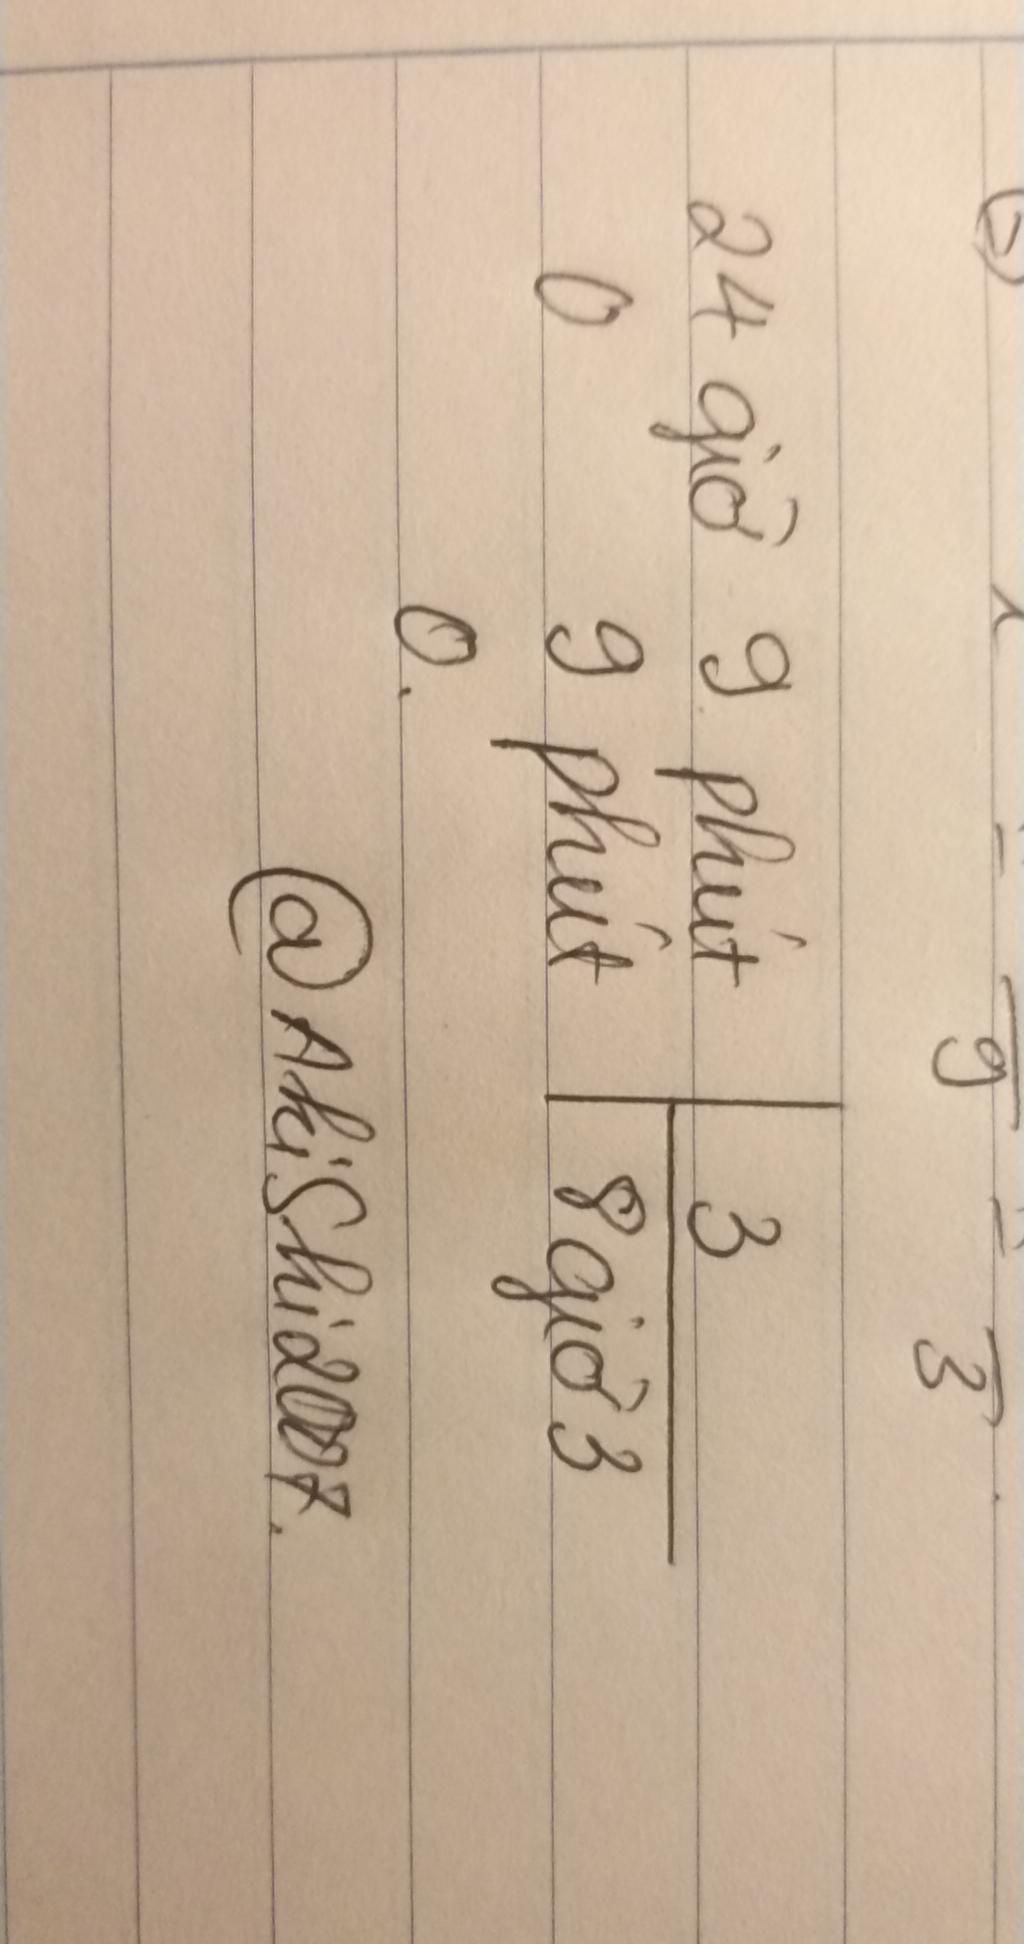 24 giờ 9 phút 3
0 9 phút 8 giờ 3
0.
@AkiShi2007.